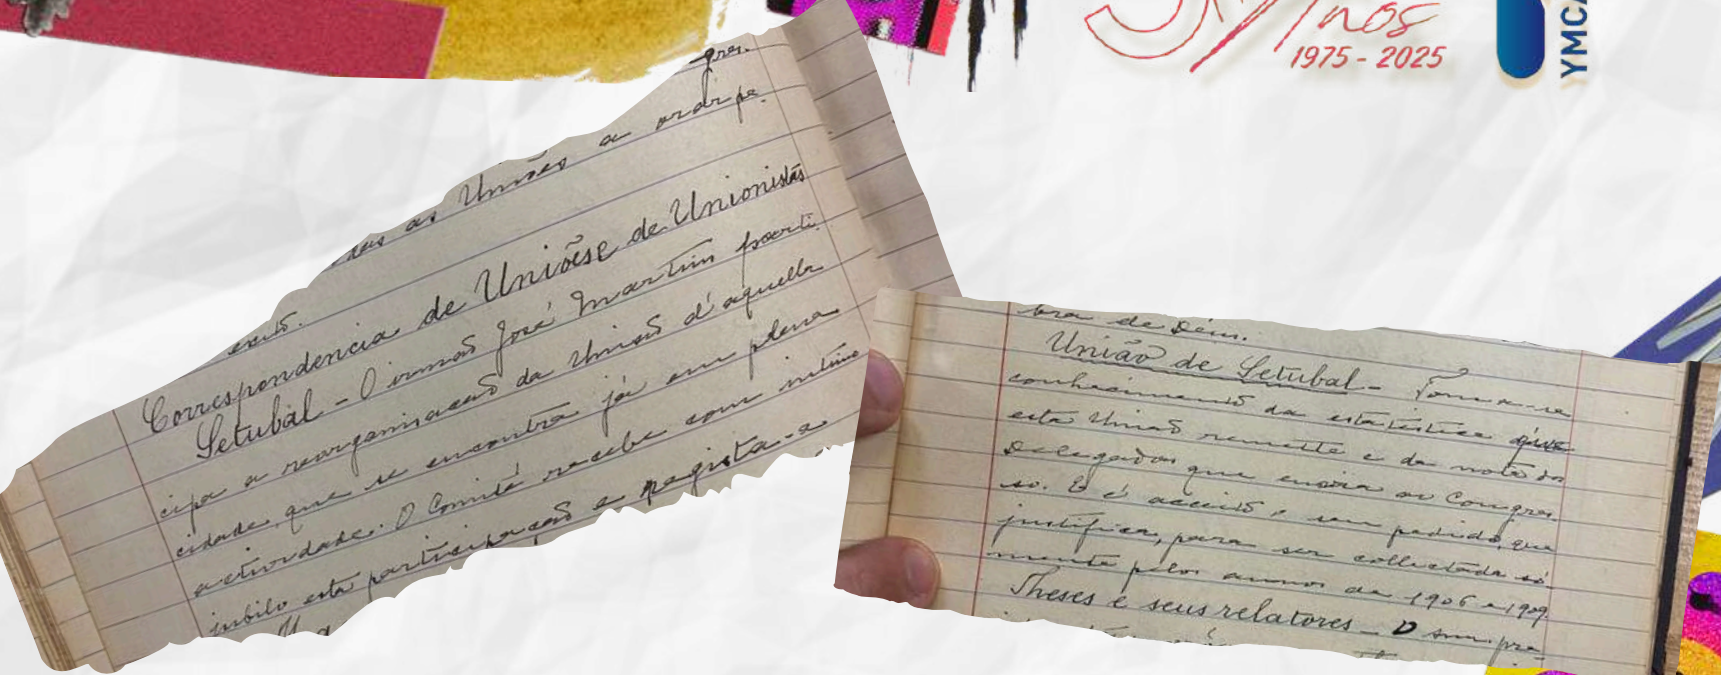 Anos
1975 - 2025
YMCA
gres.
as Uniões a ordr pe.
exito.
Correspondencia de Uniões e de Unionistas
Setubal - O irmão José Martins parti
cipa a reorganisacão da União d'aquella
cidade, que se encontra já em plena
actividade. O Comité recebe com intimo
jubilo esta participacão e registra-a
bra de Deus.
União de Setubal - Toma-se
conhecimento da estatistica que
esta União remette e da nota dos
Delegados que envia ao Congres
so. E é acceito, o seu pedido, que
justifica, para ser collectada só
mente pelos annos de 1906 e 1909.
Theses e seus relatores - O snr. pre-